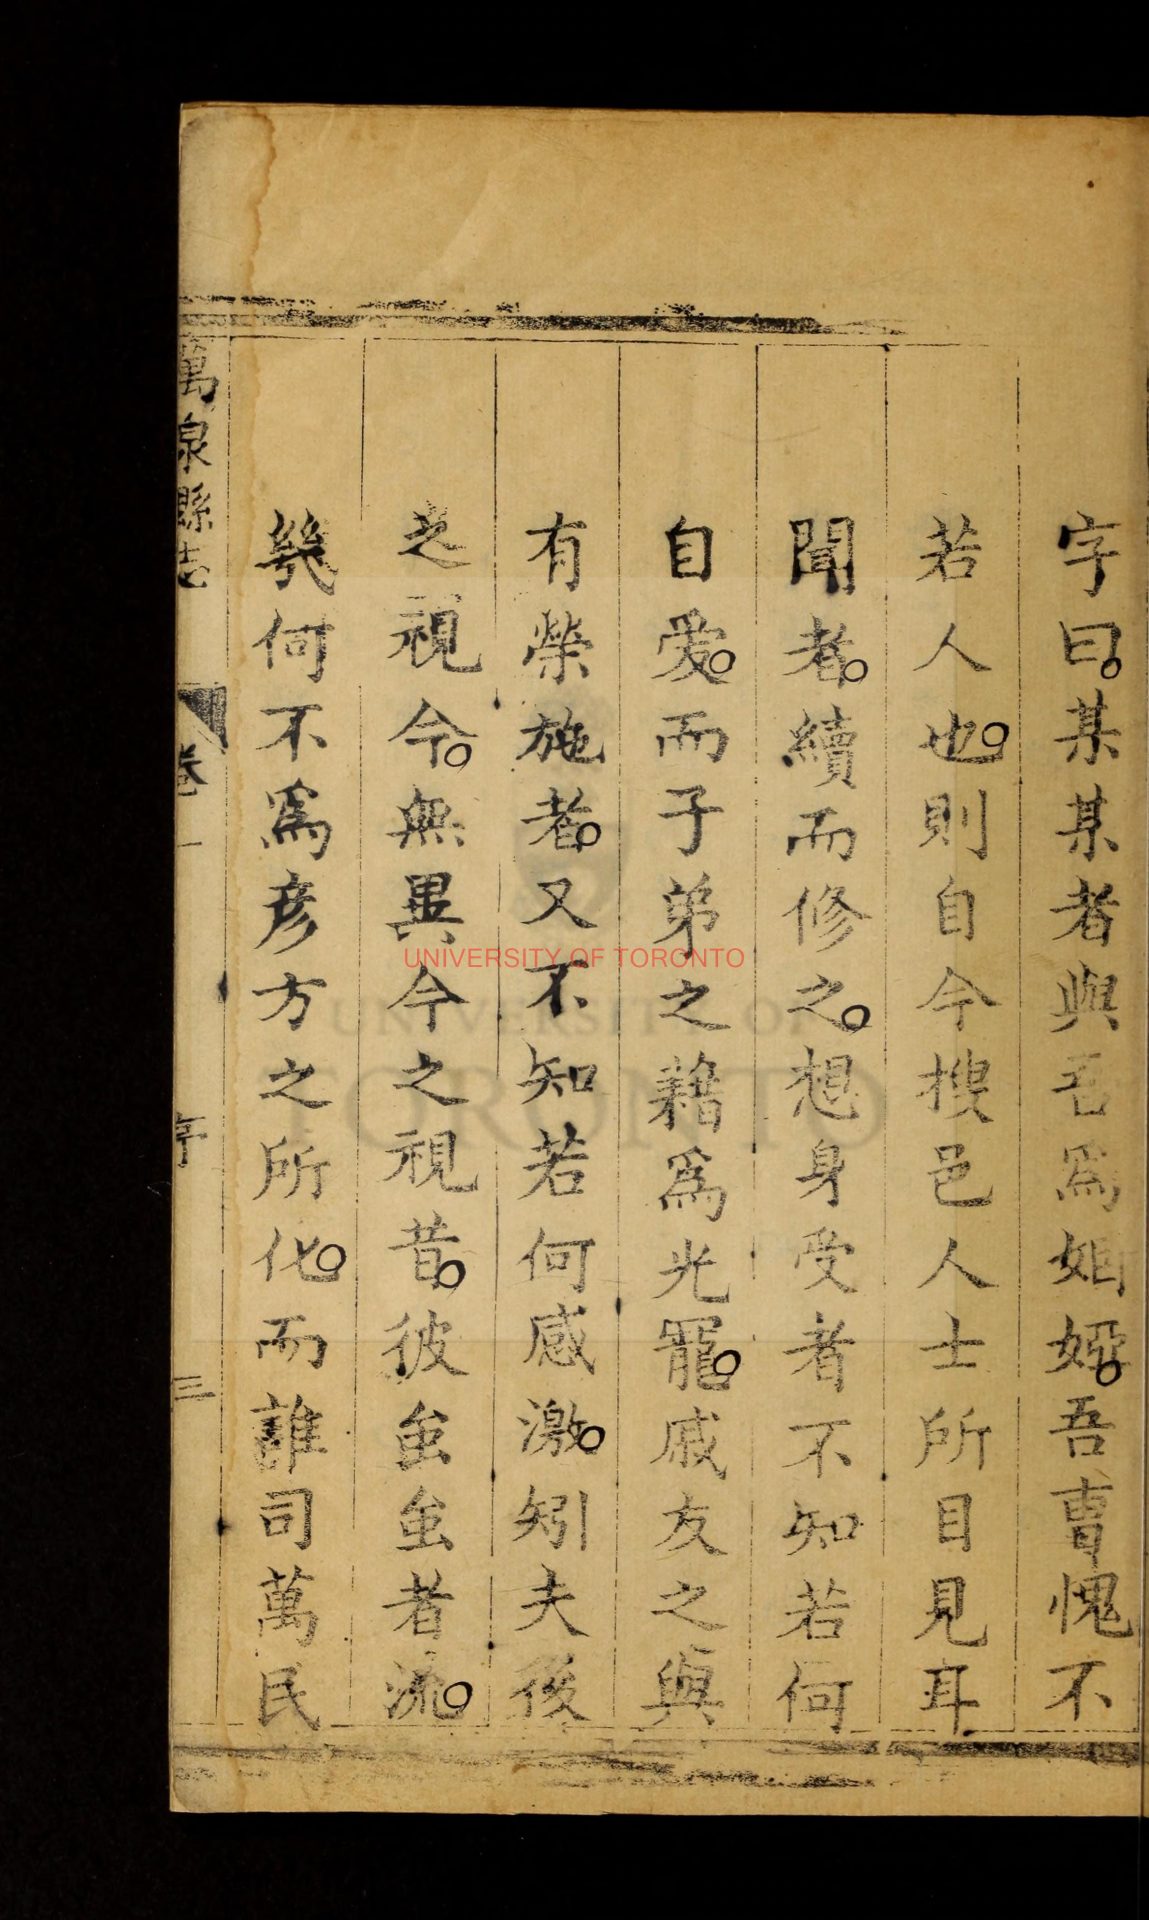 字曰。某某者與吾爲姻婭。吾曹愧不
若人也。則自今搜邑人士所目見耳
聞者。續而修之。想身受者不知若何
自愛。而子弟之藉爲光寵。戚友之與
有榮施者。又不知若何感激。矧夫後
之視今。無異今之視昔。彼蚩蚩者流。
幾何不爲彥方之所化。而誰司萬民
萬泉縣志 卷一 序 三
UNIVERSITY OF TORONTO
UNIVERSITY OF
TORONTO